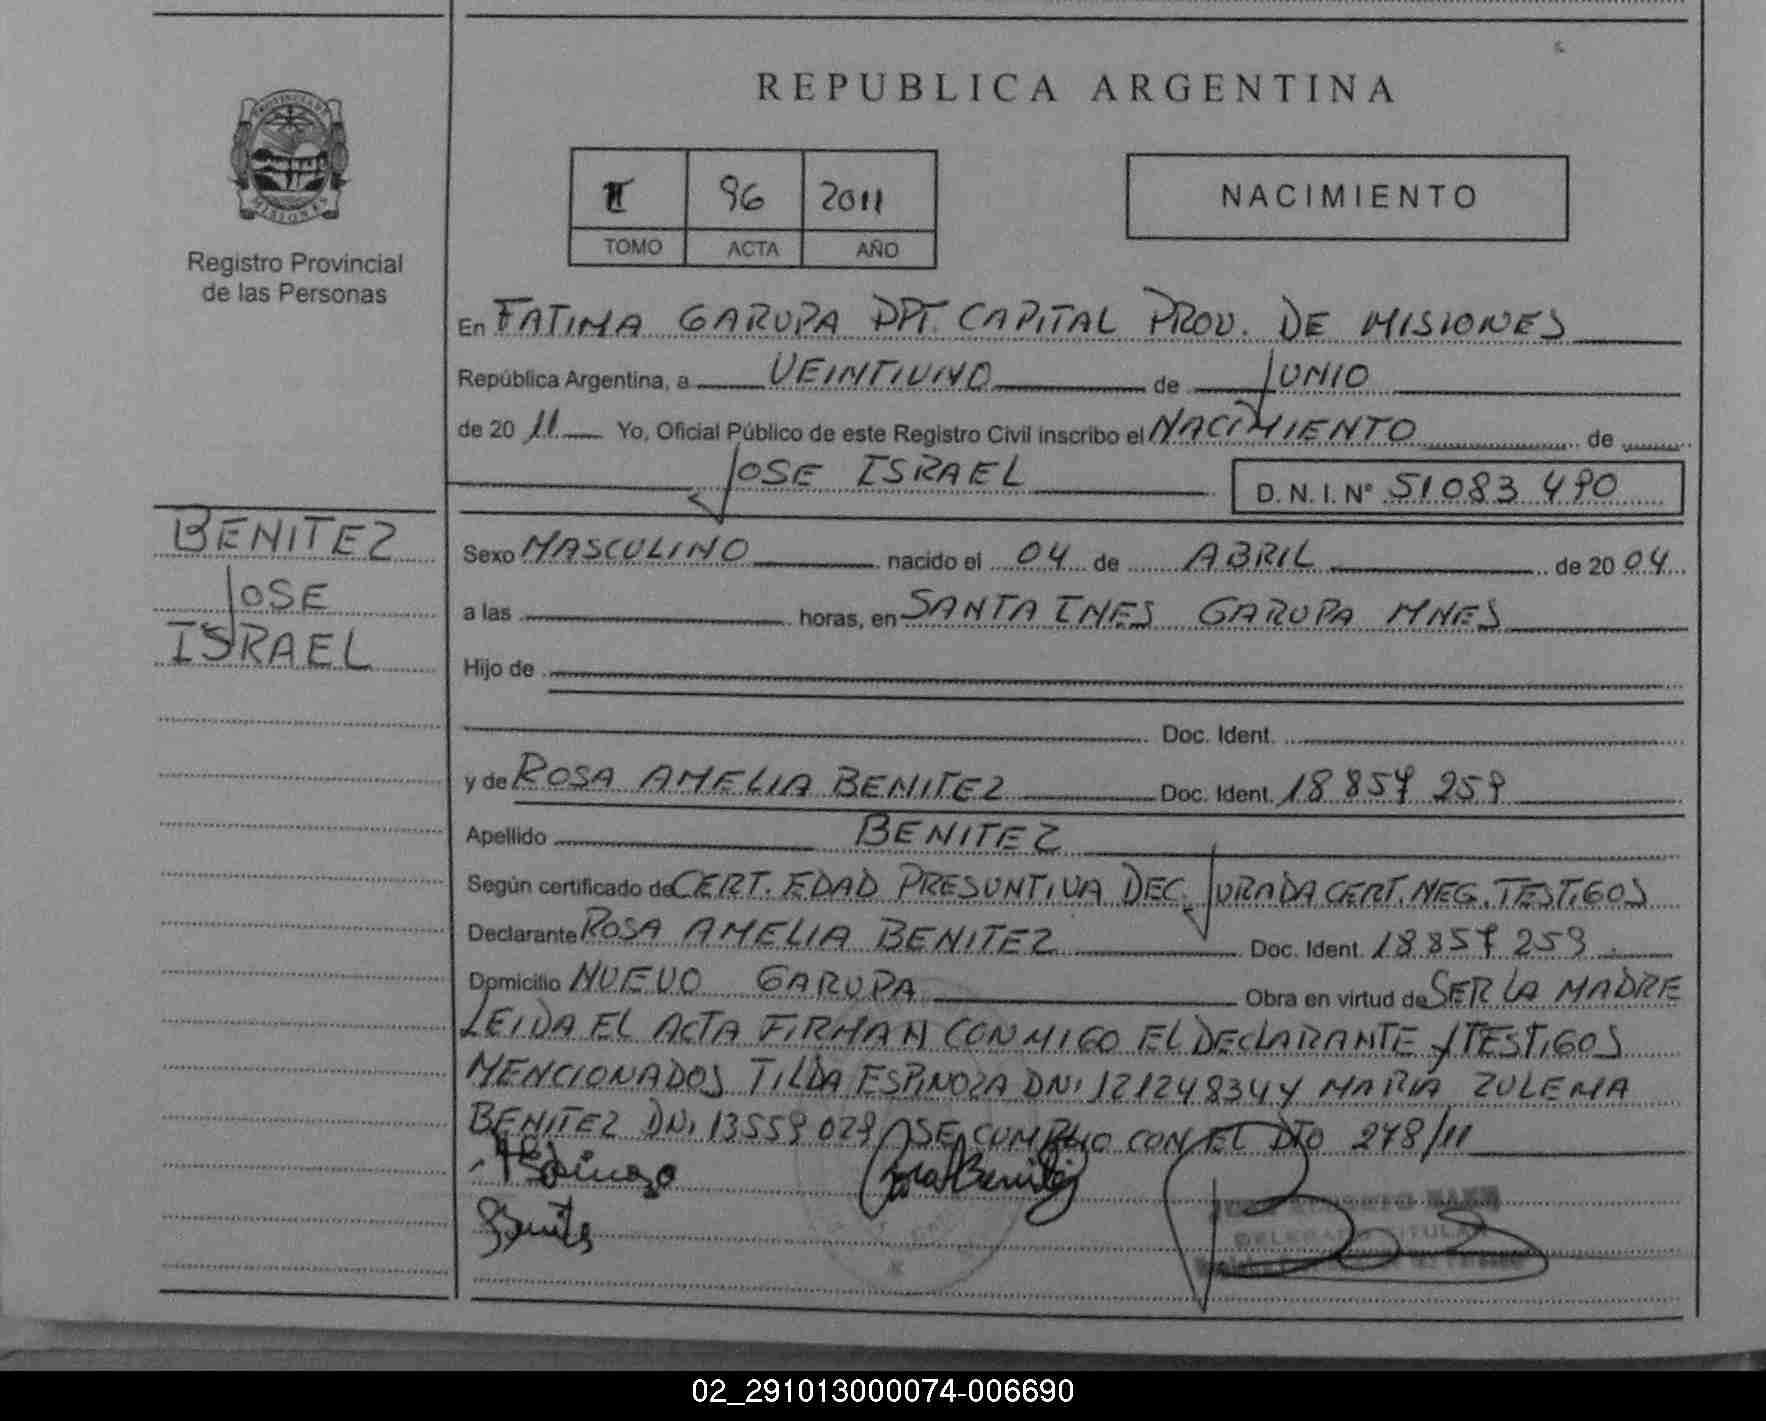 REPUBLICA ARGENTINA
PROVINCIA DE
MISIONES
Registro Provincial
de las Personas
II 96 2011
TOMO ACTA AÑO
NACIMIENTO
En FATIMA GARUPA DPT. CAPITAL PROV. DE MISIONES
República Argentina, a VEINTIUNO de JUNIO
de 20 11 Yo, Oficial Público de este Registro Civil inscribo el NACIMIENTO de
JOSE ISRAEL D. N. I. Nº 51083 490
BENITEZ
JOSE
ISRAEL
Sexo MASCULINO nacido el 04 de ABRIL de 20 04
a las horas, en SANTA INES GARUPA MNES
Hijo de
Doc. Ident.
y de ROSA AMELIA BENITEZ Doc. Ident. 18 857 259
Apellido BENITEZ
Según certificado de CERT. EDAD PRESUNTIVA DEC. JURADA CERT. NEG. TESTIGOS
Declarante ROSA AMELIA BENITEZ Doc. Ident. 18 857 259
Domicilio NUEVO GARUPA Obra en virtud de SER LA MADRE
LEIDA EL ACTA FIRMAN CONMIGO EL DECLARANTE Y TESTIGOS
MENCIONADOS TILDA ESPINOZA DNI 12124834 Y MARIA ZULEMA
BENITEZ DNI 13559 029 SE CUMPLIO CON EL DTO 278/11
Espinoza
Rosa Benitez
Benitez
DELEGADO TITULAR
02_291013000074-006690